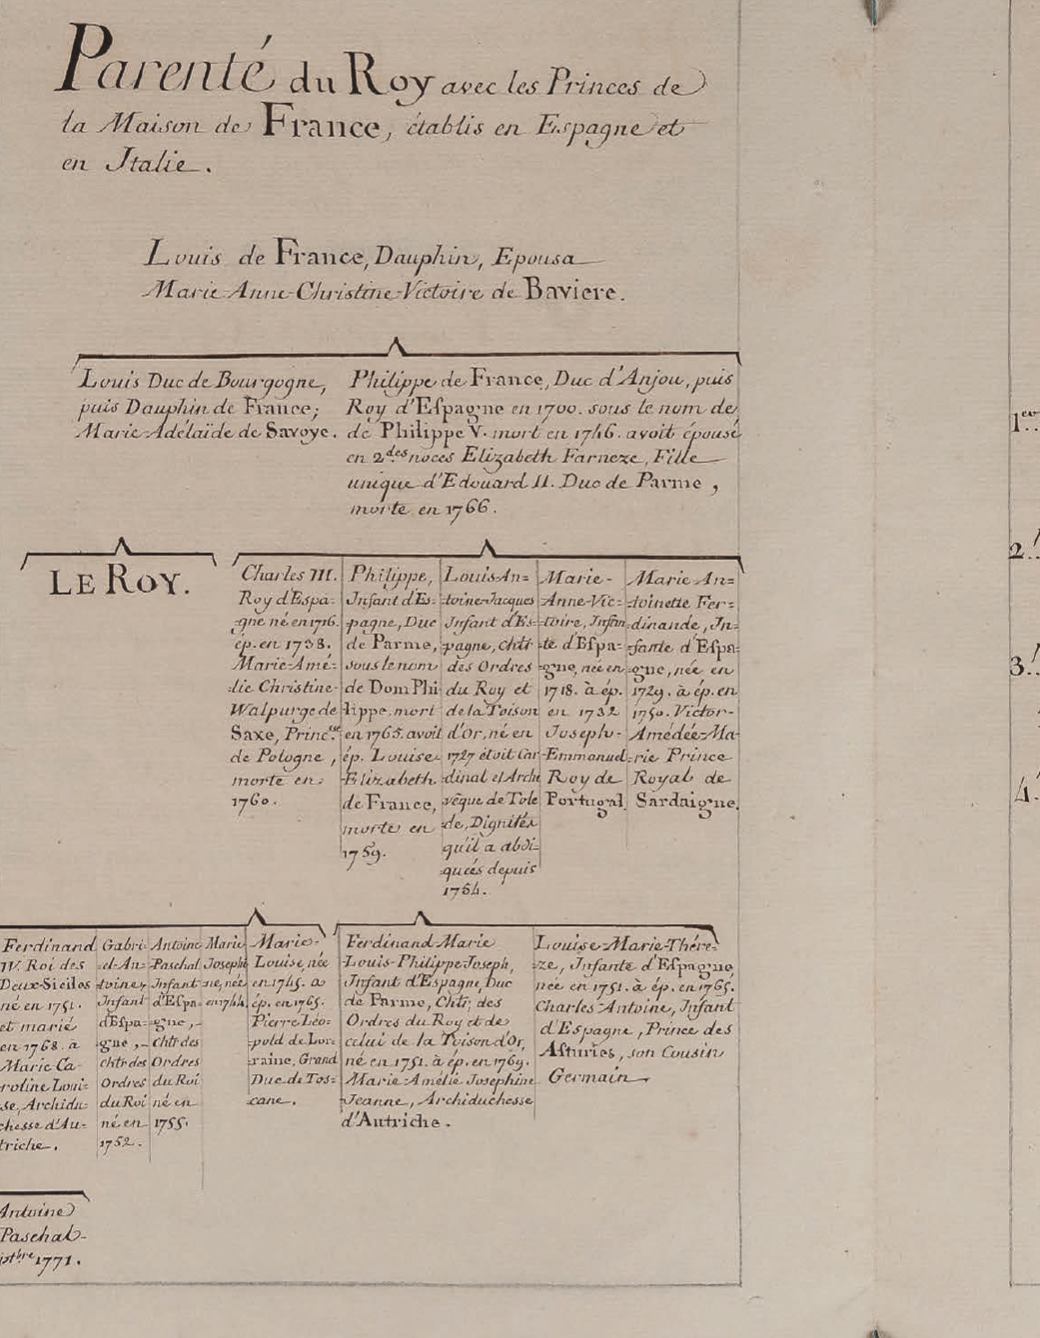 Parenté du Roy avec les Princes de
la Maison de France, établis en Espagne et
en Italie.
Louis de France, Dauphin, Epousa
Marie-Anne-Christine-Victoire de Baviere.
Louis Duc de Bourgogne,
puis Dauphin de France;
Marie-Adélaïde de Savoye.
Philippe de France, Duc d'Anjou, puis
Roy d'Espagne en 1700. sous le nom de
de Philippe V. mort en 1746. avoit épousé
en 2des noces Elizabeth Farneze, Fille
unique d'Edouard II. Duc de Parme,
morte en 1766.
LE ROY.
Charles III.
Roy d'Espa-
gne né en 1716.
ép. en 1738.
Marie-Amé-
lie Christine-
Walpurge de
Saxe, Princ.sse
de Pologne,
morte en
1760.
Philippe,
Infant d'Es-
pagne, Duc
de Parme,
sous le nom
de Dom Phi-
lippe. mort
en 1765. avoit
ép. Louise
Elizabeth
de France,
morte en
1759.
Louis An=
toine-Jacques
Infant d'Es-
pagne, Chlr
des Ordres
du Roy et
de la Toison
d'Or, né en
1727 étoit Car-
dinal et Arche
vêque de Tole
de, Dignités
qu'il a abdi-
quées depuis
1754.
Marie-
Anne-Vic=
toire, Infan-
te d'Espa=
gne, née en
1718. à ép.
en 1732
Joseph-
Emmanuel
Roy de
Portugal
Marie An=
toinette Fer=
dinande, In-
fante d'Espa
gne, née en
1729. à ép. en
1750. Victor-
Amédée-Ma-
rie Prince
Royal de
Sardaigne.
Ferdinand
IV. Roi des
Deux-Siciles
né en 1751.
et marié
en 1768. à
Marie Ca-
roline Loui=
se, Archidu=
chesse d'Au=
triche.
Gabri-
el-An-
toine,
Infant
d'Espa-
gne,
chlr des
Ordres
du Roi
né en
1752.
Antoine
Paschal
Infant
d'Espa
gne,
chlr des
Ordres
du Roi
né en
1755.
Marie
Josephi
ne, née
en 1744.
Marie-
Louise, née
en 1745. à
ép. en 1765.
Pierre Léo=
pold de Lor=
raine, Grand
Duc de Tos=
cane.
Ferdinand-Marie
Louis-Philippe-Joseph,
Infant d'Espagne, Duc
de Parme, Chlr; des
Ordres du Roy et de
celui de la Toison d'Or,
né en 1751. à ép. en 1769.
Marie Amélie Josephine
Jeanne, Archiduchesse
d'Autriche.
Louise-Marie-Thére=
ze, Infante d'Espagne,
née en 1751. à ép. en 1765.
Charles Antoine, Infant
d'Espagne, Prince des
Asturies, son Cousin
Germain.
Antoine
Paschal-
1771.
1er
2.
3.
4.